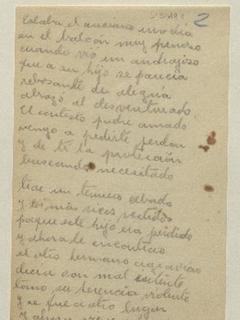 2
Estaba el anciano un dia
en el balcón muy penoso
cuando vió un andrajoso
que a su hijo se parecia
rebosante de alegria
abrazó al desventurado
El contesto padre amado
vengo a pedirte perdon
y de ti la protección
buscando necesitado
trae un ternero cebado
y los mas ricos vestidos
porque este hijo era perdido
y ahora lo encontrado
el otro hermano
decia con mal
tomo su herencia
y se fue a otro lugar